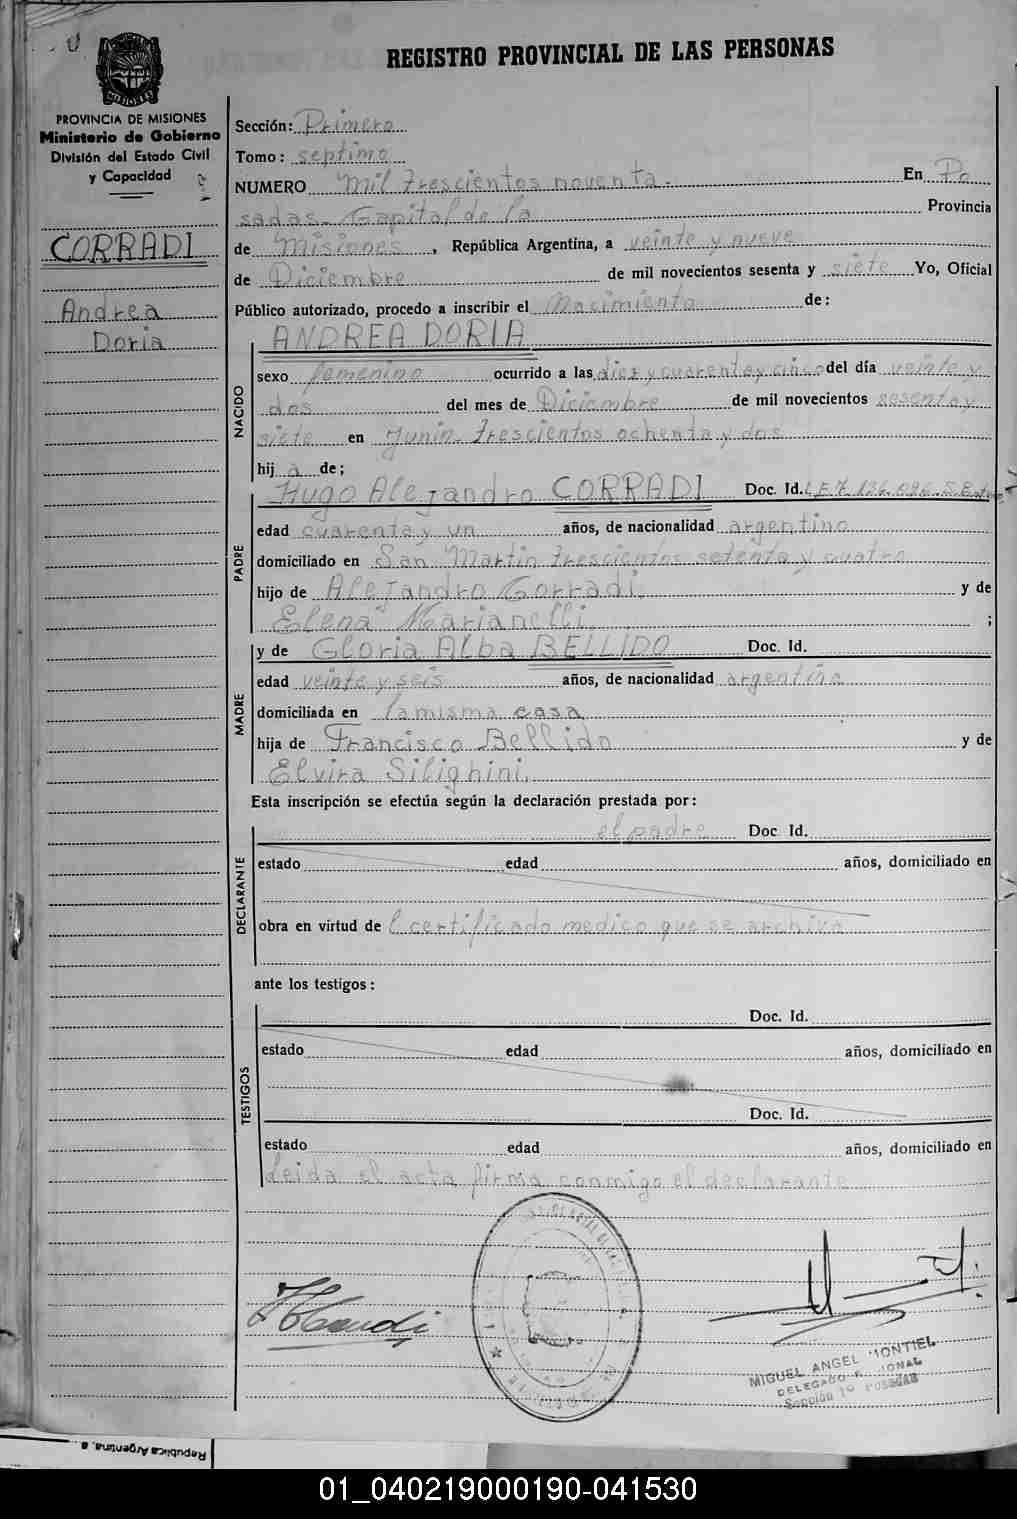 REGISTRO PROVINCIAL DE LAS PERSONAS
MISIONES
PROVINCIA DE MISIONES
Ministerio de Gobierno
División del Estado Civil
y Capacidad
CORRADI
Andrea
Doria
Sección: Primero
Tomo: septimo
NUMERO mil trescientos noventa.- En Po
sadas - Capital de la Provincia
de Misiones, República Argentina, a veinte y nueve
de Diciembre de mil novecientos sesenta y siete Yo, Oficial
Público autorizado, procedo a inscribir el Nacimiento de:
ANDREA DORIA
NACIDO
sexo femenino ocurrido a las diez y cuarenta y cinco del día veinte y
dos del mes de Diciembre de mil novecientos sesenta y
siete en Junin - trescientos ochenta y dos
hij a de;
Hugo Alejandro CORRADI Doc. Id. L.E.7.136.096
PADRE
edad cuarenta y un años, de nacionalidad argentino
domiciliado en San Martin trescientos setenta y cuatro
hijo de Alejandro Corradi. y de
Elena Marianelli. ;
y de Gloria Alba BELLIDO Doc. Id.
MADRE
edad veinte y seis años, de nacionalidad argentina
domiciliada en la misma casa
hija de Francisco Bellido y de
Elvira Silighini.
Esta inscripción se efectúa según la declaración prestada por:
el padre Doc Id.
DECLARANTE
estado edad años, domiciliado en
obra en virtud de l certificado medico que se archiva
ante los testigos:
Doc. Id.
TESTIGOS
estado edad años, domiciliado en
Doc. Id.
estado edad años, domiciliado en
Leida el acta firma conmigo el declarante
MIGUEL ANGEL MONTIEL
DELEGADO
Sección 1º Posadas
República Argentina, a
01_040219000190-041530